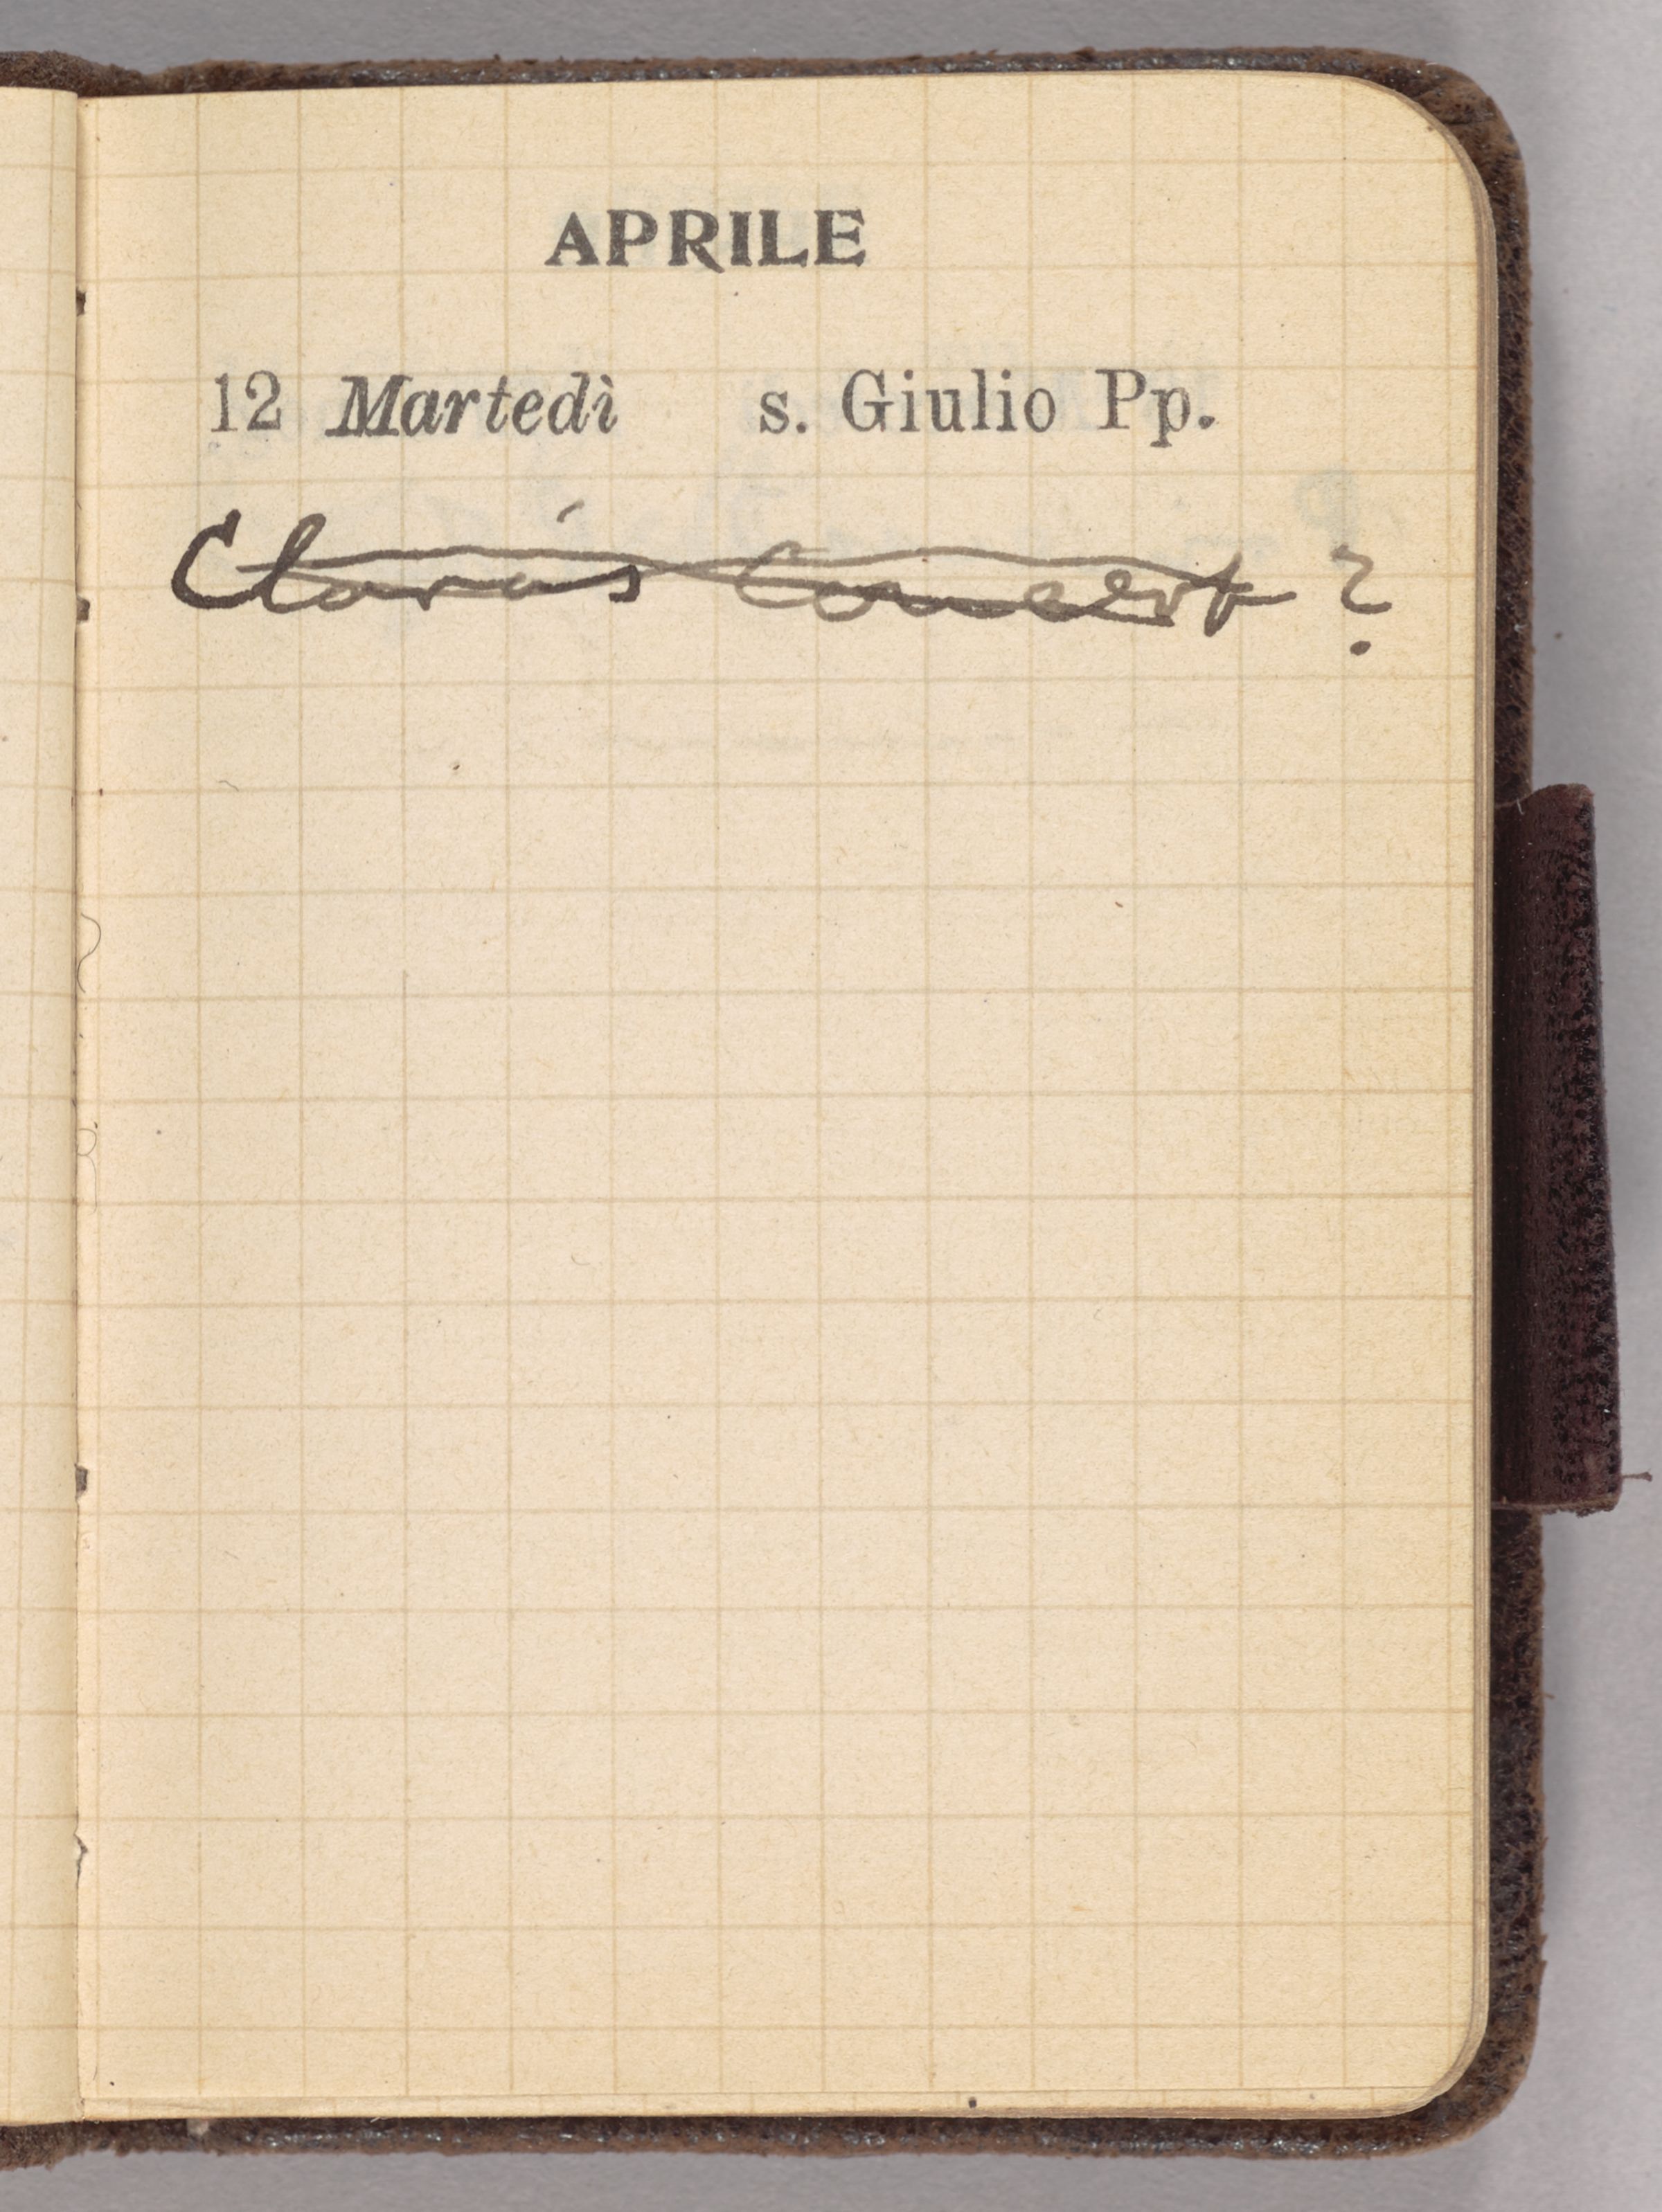 APRILE
12 Martedì s. Giulio Pp.
Clara's Concert ?